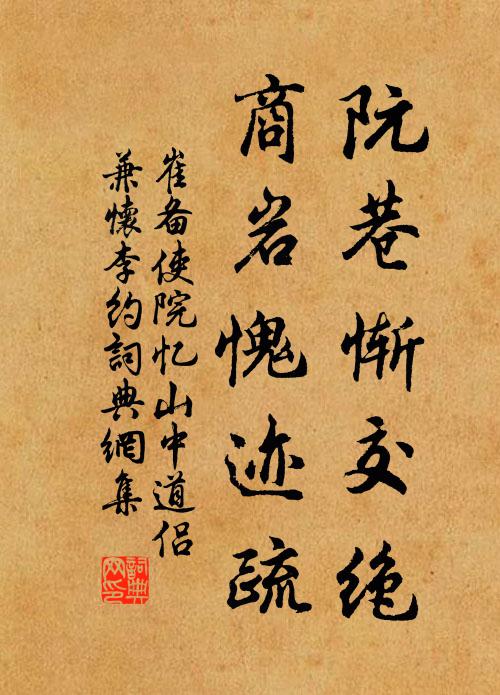 阮巷惭交绝
商岩愧迹疏
崔备使院忆山中道侣
兼懷李约詞典網集
詞典网印